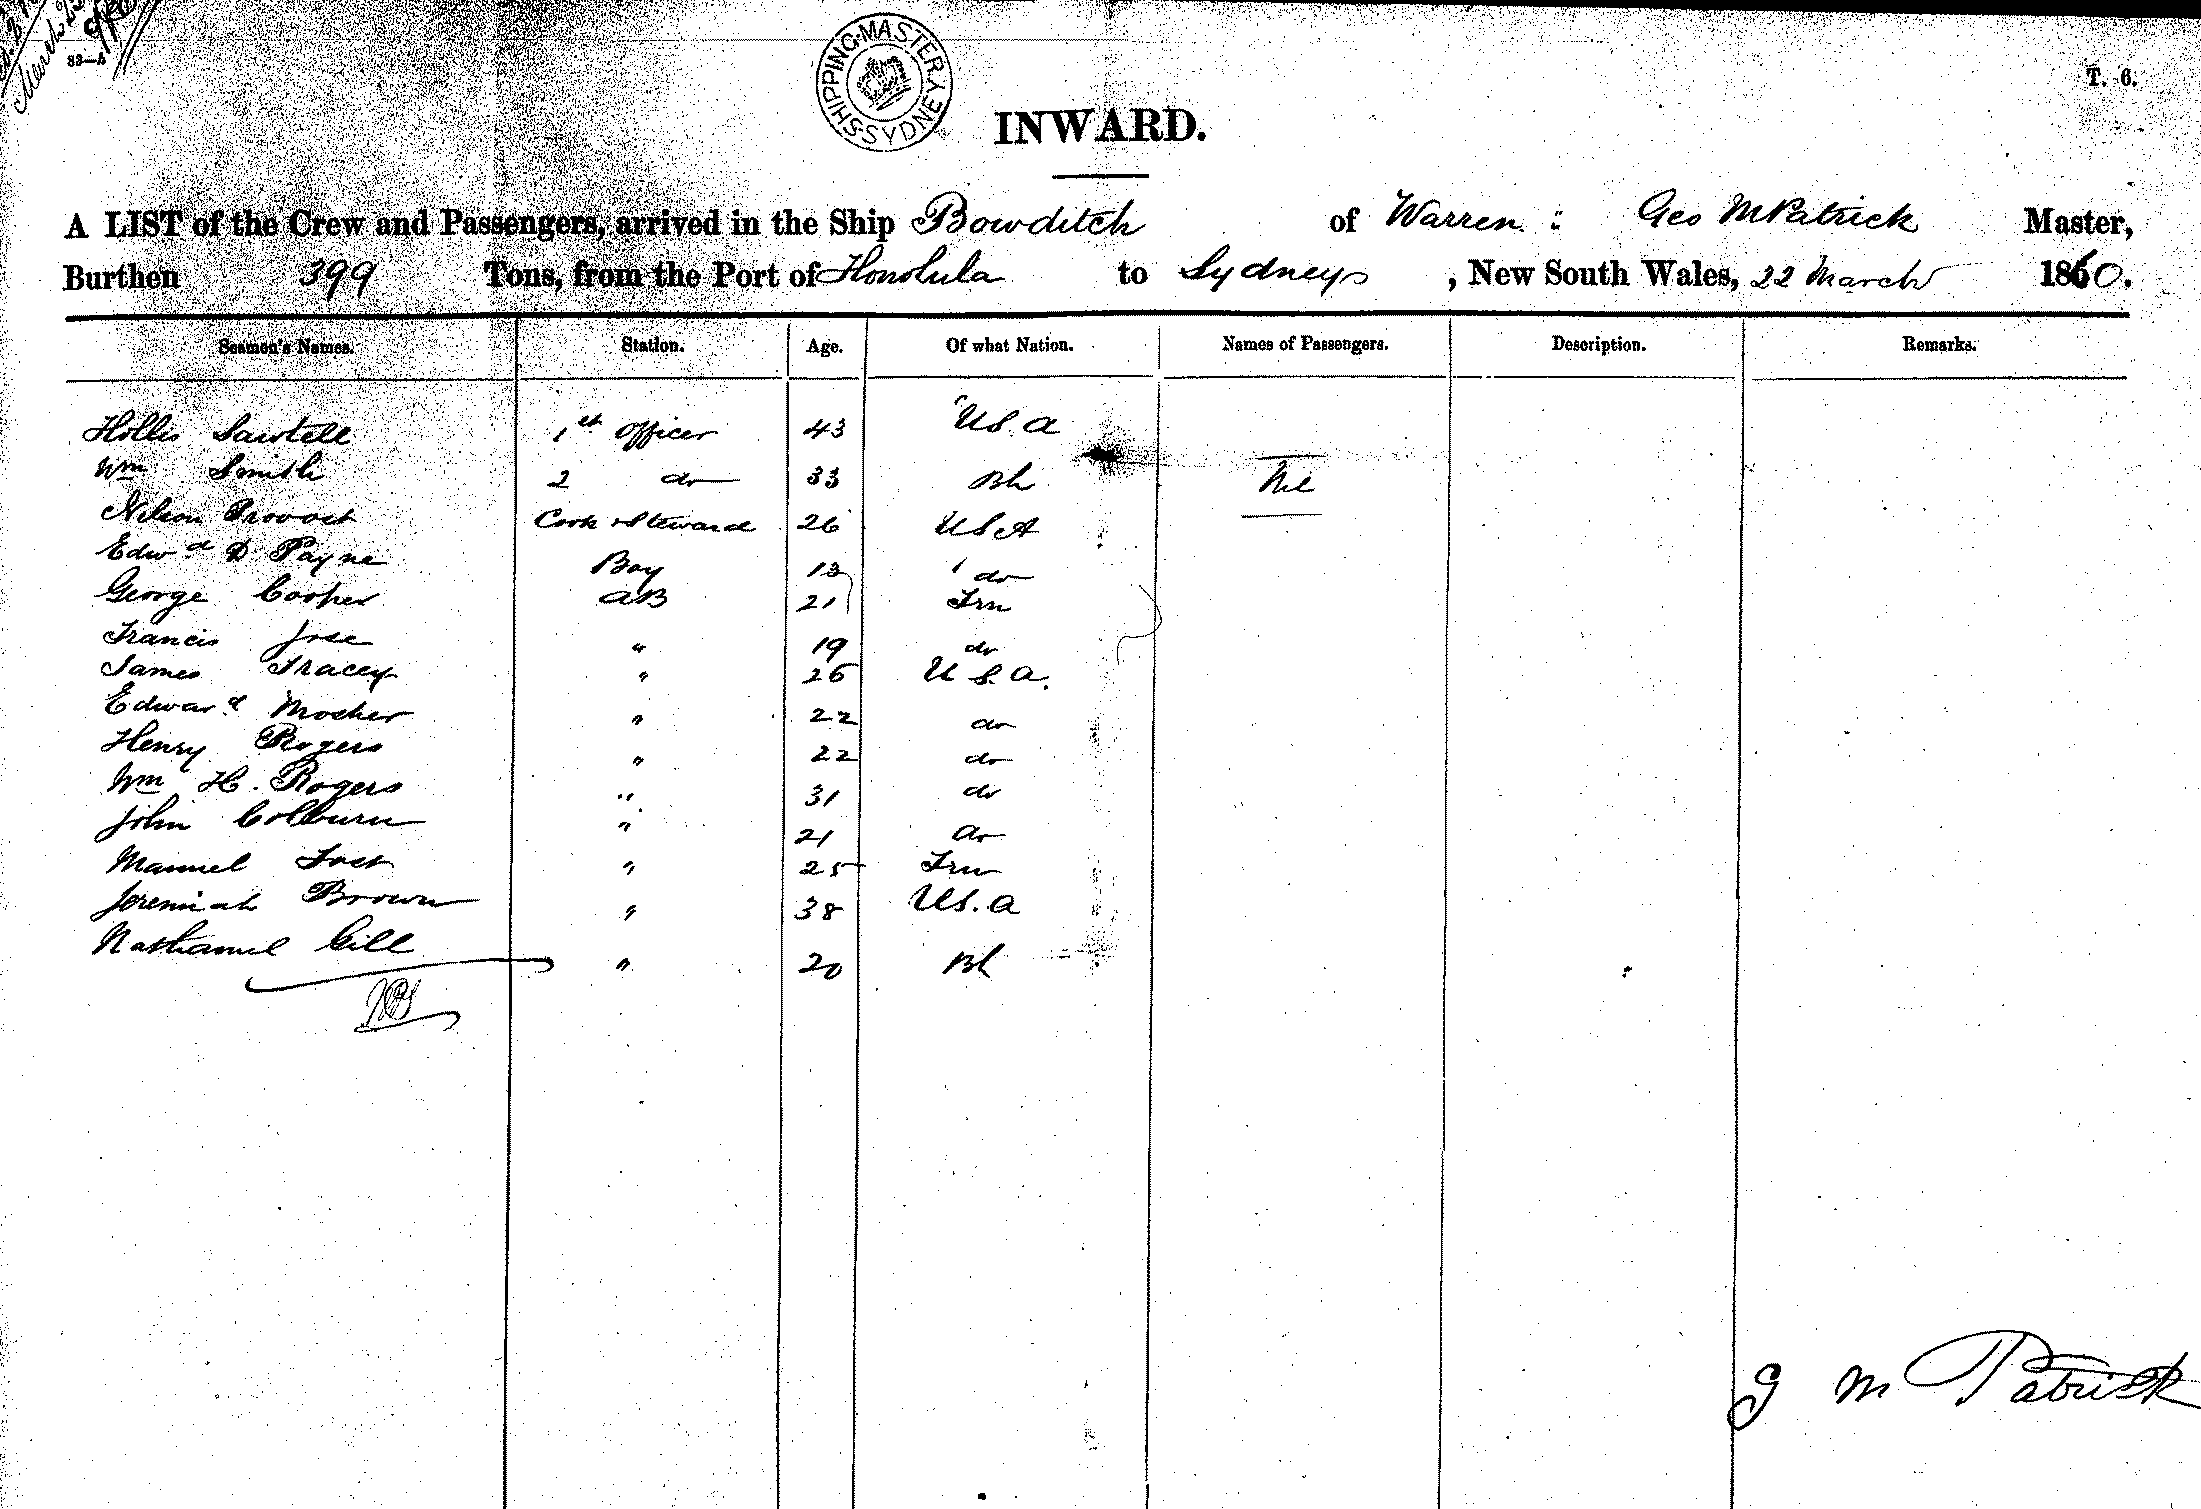 March 23
83—A
SHIPPING·MASTER,
SYDNEY
T. 6.
INWARD.
A LIST of the Crew and Passengers, arrived in the Ship Bowditch of Warren : Geo M Patrick Master,
Burthen 399 Tons, from the Port of Honolula to Sydney , New South Wales, 22 March 1860.
Seamen's Names. Station. Age. Of what Nation. Names of Passengers. Description. Remarks.
Hollis Sawtell 1st Officer 43 U S. a
Wm Smith 2 do 33 Bh Nil
Nelson Provost Cook & Steward 26 U S A
Edwd D Payne Boy 13 do
George Cooper aB 21 Frn
Francis Jose " 19 do
James Tracey " 26 U S. a.
Edward Mosher " 22 do
Henry Rogers " 22 do
Wm H. Rogers " 31 do
John Colburn " 21 do
Manuel Fost " 25 Frn
Jeremiah Brown " 38 U S. a
Nathaniel Gill " 20 Bh
G M Patrick